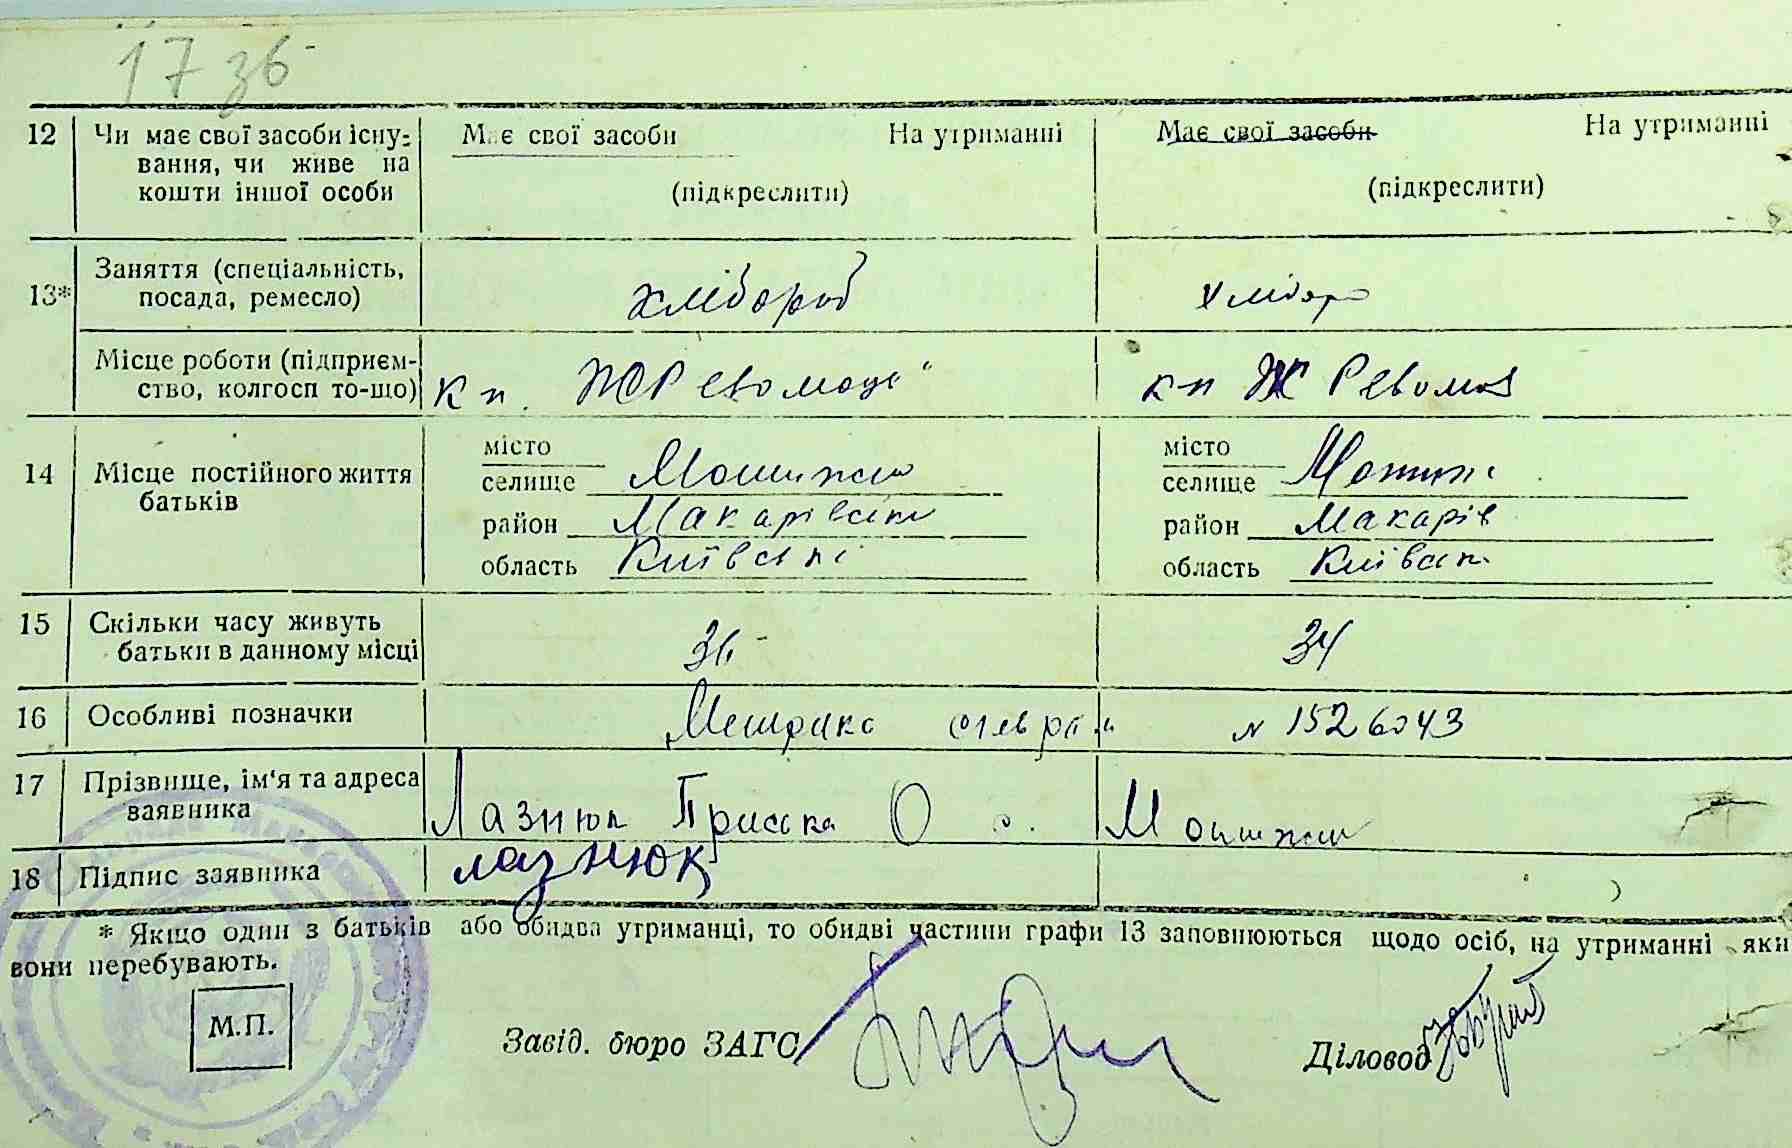 17 зб
12 Чи має свої засоби існу- Має свої засоби На утриманні Має свої засоби На утриманні
вання, чи живе на
кошти іншої особи (підкреслити) (підкреслити)
13* Заняття (спеціальність,
посада, ремесло) хлібороб хлібор
Місце роботи (підприєм-
ство, колгосп то-що) к п. к-п
14 Місце постійного життя
батьків
місто місто
селище Мотижин селище Мотиж
район Макарівськ район Макарів
область Київськ область Київськ
15 Скільки часу живуть
батьки в данному місці 36 34
16 Особливі позначки Метрика N 1526043
17 Прізвище, ім'я та адреса
заявника Лазнюк Приська О Мотижин
18 Підпис заявника лазнюк
* Якщо один з батьків або обидва утриманці, то обидві частини графи 13 заповнюються щодо осіб, на утриманні яки
вони перебувають.
М.П.
Завід. бюро ЗАГС Діловод